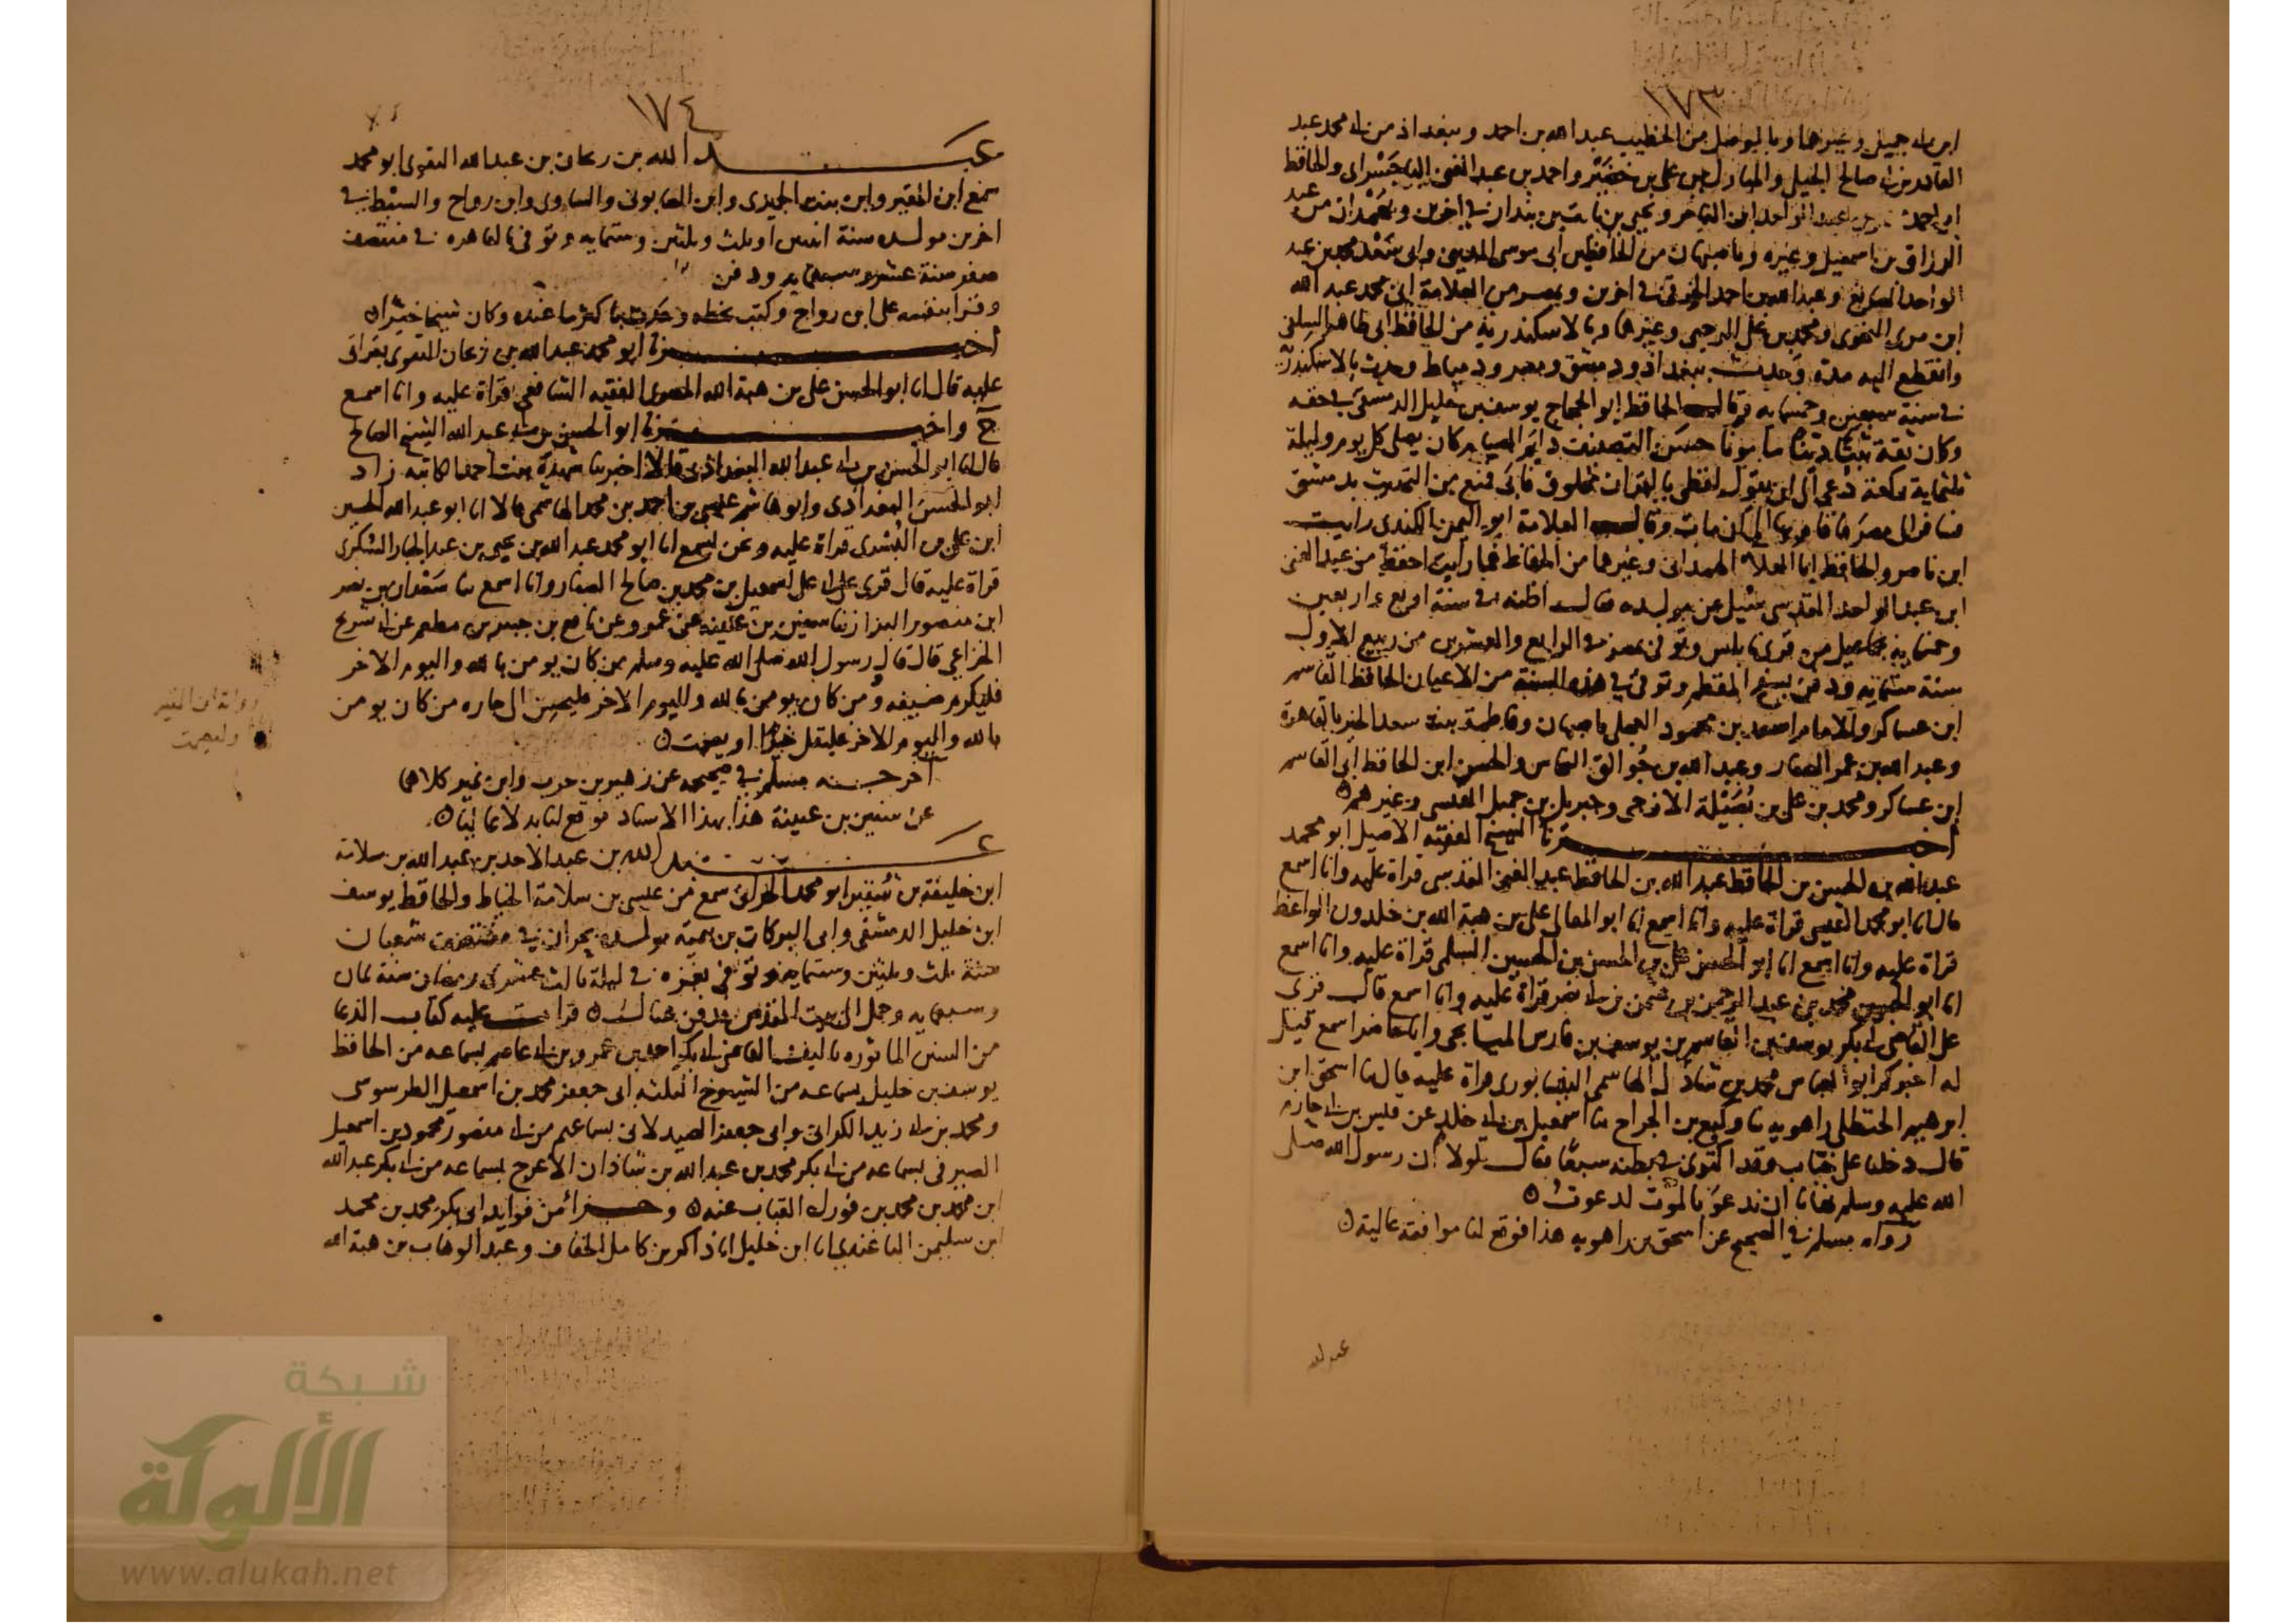 ١٧٣
ابن ابي جميل وغيرها وبالموصل من الخطيب عبد الله بن احمد وببغداد من ابي محمد عبد
القادر بن ابي صالح الجيلي والمبارك بن علي بن خضير واحمد بن عبد الغني الباجسراي والحافظ
ابي احمد عبد الواحد ابن الفاخر ويحيى بن ثابت بن بندار في اخرين وبهمدان من عبد
الرزاق بن اسمعيل وغيره وباصبهان من الحافظين ابي موسى المديني وابي سعد محمد بن عبد
الواحد الصايغ وعبد الله بن احمد الخرقي في اخرين وبمصر من العلامة ابي محمد عبد الله
ابن بري النحوي ومحمد بن علي الرحبي وغيرها وبالاسكندرية من الحافظ ابي طاهر السلفي
وانقطع اليه مدة وحدث ببغداد ودمشق ومصر ودمياط وحدث بالاسكندرية
في سنة سبعين وخمسمايه وقال الحافظ ابو الحجاج يوسف بن خليل الدمشقي في حقه
وكان ثقة ثبتا دينا مامونا حسن التصنيف دايم الصيام كان يصلي كل يوم وليلة
ثلثماية ركعة دعي الى ان يقول لفظي بالقران مخلوق فابى فمنع من التحديث بدمشق
فسافر الى مصر فاقام بها الى ان مات وقال العلامة ابو اليمن الكندي رايت
ابن ناصر والحافظ ابا العلاء الهمداني وغيرها من الحفاظ فما رايت احفظ من عبد الغني
ابن عبد الواحد المقدسي سئل عن مولده فقال اظنه في سنة اربع واربعين
وخمسمايه بجماعيل من قرى نابلس وتوفي بمصر في الرابع والعشرين من ربيع الاول
سنة ستمايه ودفن بسفح المقطم وتوفي في هذه السنة من الاعيان الحافظ القاسم
ابن عساكر والامام اسعد بن محمود العجلي باصبهان وفاطمة بنت سعد الخير بالقاهرة
وعبد الله بن عمر الصفار وعبد الله بن جوالق النحاس والحسن ابن الحافظ ابي القاسم
ابن عساكر ومحمد بن علي بن نصيلة الازجي وجبريل بن جميل القيسي وغيرهم ۵
اخبرنا الشيخ الفقيه الاصيل ابو محمد
عبد الله بن الحسن بن الحافظ عبد الله بن الحافظ عبد الغني المقدسي قراة عليه وانا اسمع
قال انا ابو محمد القيسي قراة عليه وانا اسمع انا ابو المعالي علي بن هبة الله بن خلدون الواعظ
قراة عليه وانا اسمع انا ابو الحسن علي بن الحسن بن الحسين السلمي قراة عليه وانا اسمع
انا ابو الحسين محمد بن عبد الرحمن بن عثمن بن ابي نصر قراة عليه وانا اسمع قال قري
على القاضي ابي بكر يوسف بن القاسم بن يوسف بن فارس الميانجي وانا حاضر اسمع قيل
له اخبركم ابو العباس محمد بن شادل الهاشمي النيسابوري قراة عليه قال ثنا اسحق ابن
ابرهيم الحنظلي راهويه ثنا وكيع بن الجراح ثنا اسمعيل بن ابي خلد عن قيس بن ابي حازم
قال دخلنا على خباب وقد اكتوى في بطنه سبعا فقال لولا ان رسول الله صلى
الله عليه وسلم نهانا ان ندعو بالموت لدعوت ۵
رواه مسلم في الصحيح عن اسحق بن راهويه هذا فوقع لنا موافقة عالية ۵
عبد الله
١٧٤
عبد الله بن ريحان بن عبد الله التقوي ابو محمد
سمع ابن المقير وابن بنت الجميزي وابن الصابوني والساوي وابن رواج والسبط في
اخرين مولده سنة اثنين او ثلث وثلثين وستمايه وتوفي بالقاهره في منتصف
صفر سنة عشر وسبعمايه ودفن
وقرا بنفسه على ابن رواج وكتب بخطه وحدث باكثر ما عنده وكان شيخا خيرا ۵
اخبرنا ابو محمد عبد الله بن ريحان التقوي بقراتي
عليه قال انا ابو الحسن علي بن هبة الله الفقيه الشافعي قراة عليه وانا اسمع
ح واخبرنا ابو الحسين بن ابي عبد الله الشيخ الصالح
قال انا ابو الحسن بن ابي عبد الله البغدادي قالا اخبرتنا شهدة بنت احمد الكاتبه زاد
ابو الحسن البغدادي وابو هاشم عيسى بن احمد بن محمد الهاشمي قالا انا ابو عبد الله الحسين
ابن علي بن البسري قراة عليه ونحن نسمع انا ابو محمد عبد الله بن يحيى بن عبد الجبار السكري
قراة عليه قال قري على ابي علي اسمعيل بن محمد بن صالح الصفار وانا اسمع ثنا سعدان بن نصر
ابن منصور البزاز ثنا سفين بن عيينه عن عمرو عن نافع بن جبير بن مطعم عن ابي شريح
الخزاعي قال قال رسول الله صلى الله عليه وسلم من كان يومن بالله واليوم الاخر
فليكرم ضيفه ومن كان يومن بالله واليوم الاخر فليحسن الى جاره من كان يومن
بالله واليوم الاخر فليقل خيرا او ليصمت ۵
اخرجه مسلم في صحيحه عن زهير بن حرب وابن نمير كلاهما
عن سفين بن عيينة هذا بهذا الاسناد فوقع لنا بدلا عاليا ۵
عبد الله بن عبد الاحد بن عبد الله بن سلامة
ابن خليفة بن شقير ابو محمد الحراني سمع من عيسى بن سلامة الخياط والحافظ يوسف
ابن خليل الدمشقي وابي البركات بن تيمية مولده بحران في منتصف شعبان
سنة ثلث وثلثين وستمايه وتوفي بغزه في ليلة ثالث عشري رمضان سنة ثمان
وسبعمايه وحمل الى بيت المقدس فدفن هنالك ۵ قرات عليه كتاب الدعا
من السنن الماثوره تاليف القاضي ابي بكر احمد بن عمرو بن ابي عاصم بسماعه من الحافظ
يوسف بن خليل بسماعه من الشيوخ الثلثه ابي جعفر محمد بن اسمعيل الطرسوسي
ومحمد بن ابي زيد الكراني وابي جعفر الصيدلاني بسماعهم من ابي منصور محمود بن اسمعيل
الصيرفي بسماعه من ابي بكر محمد بن عبد الله بن شاذان الاعرج بسماعه من ابي بكر عبد الله
ابن محمد بن محمد بن فورك القباب عنه ۵ وجزأ من فوايد ابي بكر محمد بن محمد
ابن سليمن الباغندي انا ابن خليل انا ذاكر بن كامل الخفاف وعبد الوهاب بن هبة الله
شبكة
الألوكة
www.alukah.net